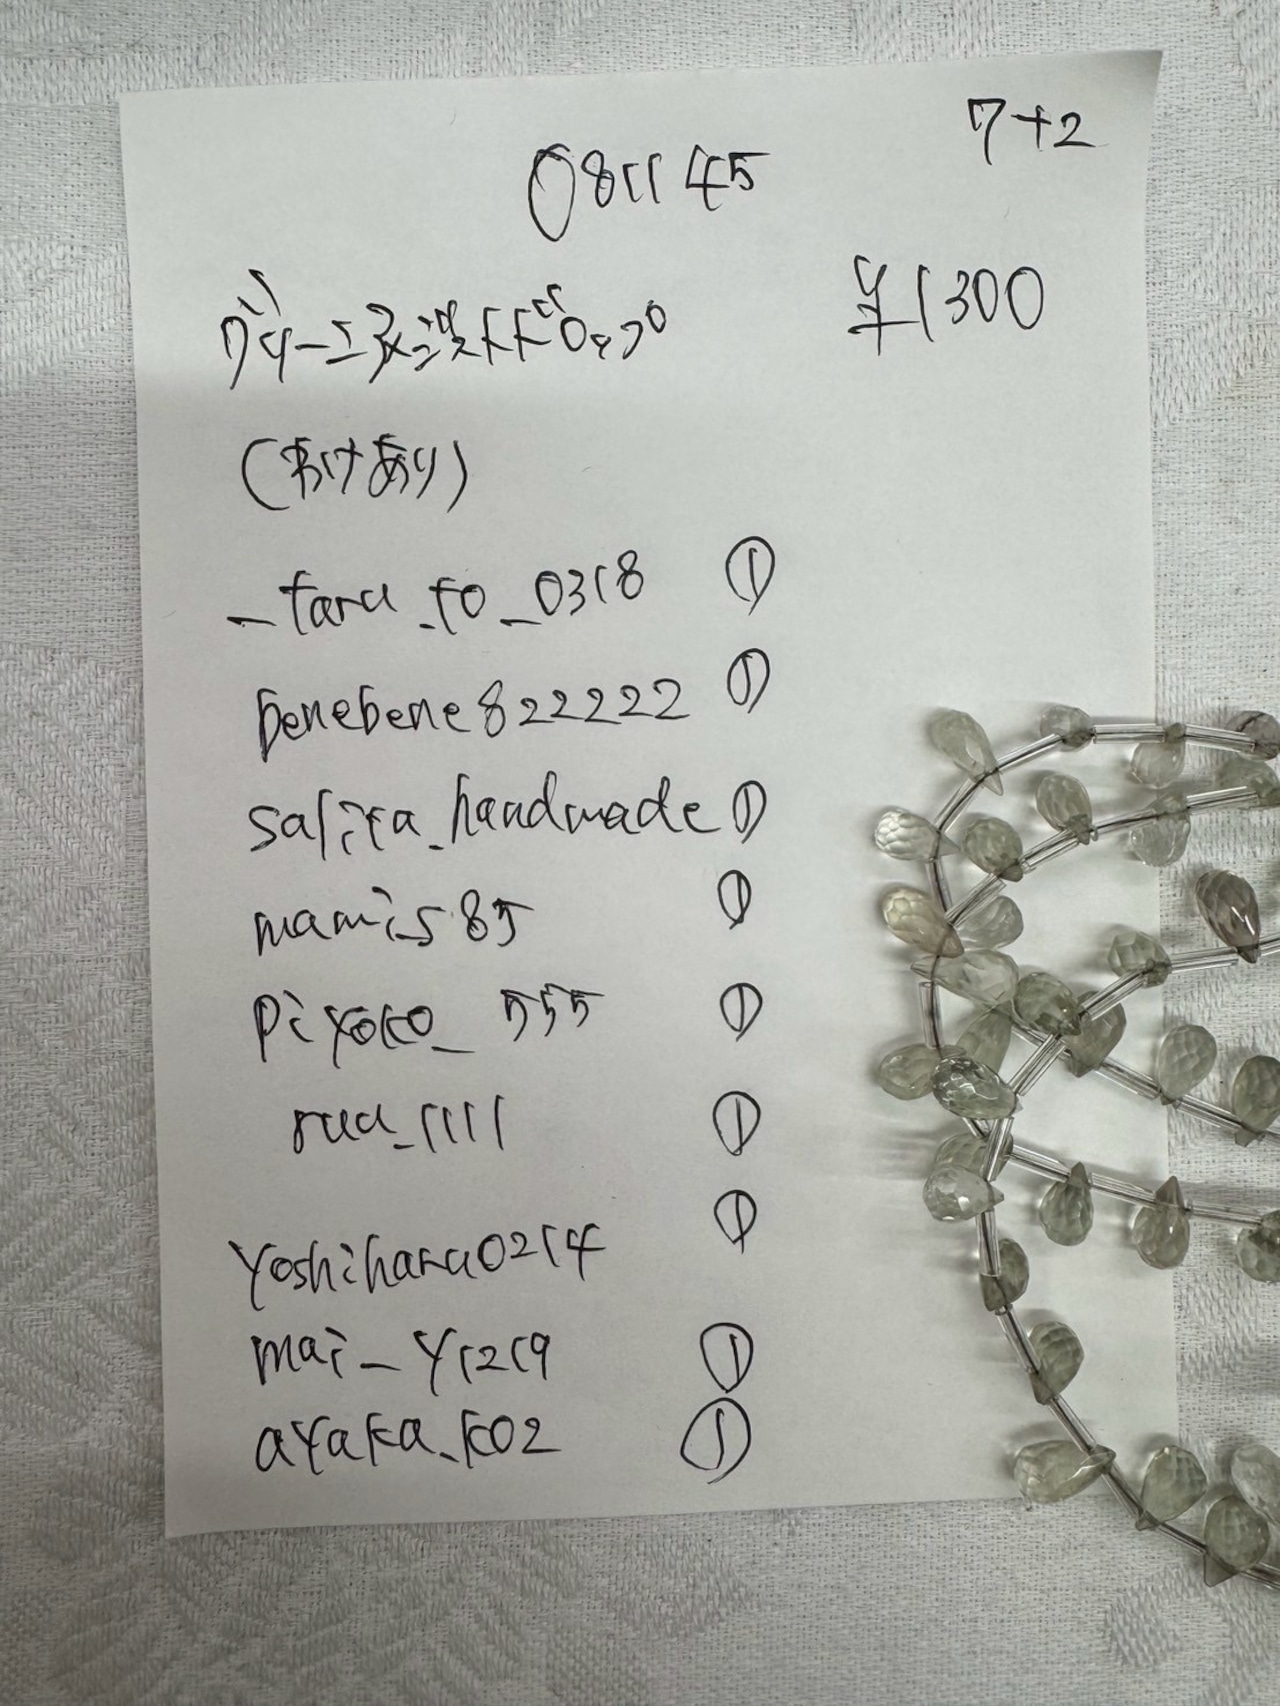 7+2
081145
¥1300
(わけあり)
_taru_to_0318 ①
benebene822222 ①
salita_handmade ①
mamis85 ①
piyoko_555 ①
ruu_1111 ①
yoshiharu0214 ①
mai_y1219 ①
ayaka_k02 ①